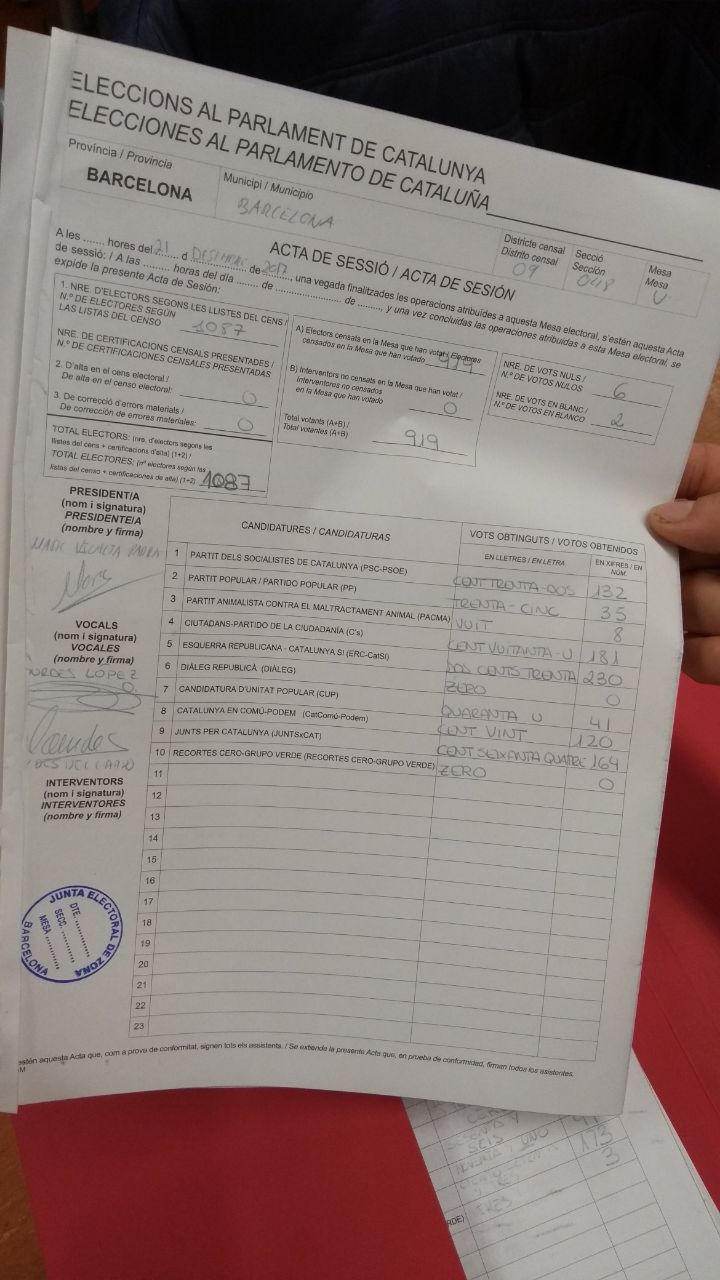 ELECCIONS AL PARLAMENT DE CATALUNYA
ELECCIONES AL PARLAMENTO DE CATALUÑA
Província / Provincia
BARCELONA
Municipi / Municipio
BARCELONA
Districte censal
Distrito censal
09
Secció
Sección
048
Mesa
Mesa
U
ACTA DE SESSIÓ / ACTA DE SESIÓN
A les ....... hores del 21 d DESEMBRE de 2017, una vegada finalitzades les operacions atribuïdes a aquesta Mesa electoral, s'estén aquesta Acta
de sessió: / A las ........ horas del día ....... de ........................ de ......., y una vez concluidas las operaciones atribuidas a esta Mesa electoral, se
expide la presente Acta de Sesión:
1. NRE. D'ELECTORS SEGONS LES LLISTES DEL CENS /
N.º DE ELECTORES SEGÚN
LAS LISTAS DEL CENSO
1087
NRE. DE CERTIFICACIONS CENSALS PRESENTADES /
N.º DE CERTIFICACIONES CENSALES PRESENTADAS
2. D'alta en el cens electoral /
De alta en el censo electoral:
0
3. De correcció d'errors materials /
De corrección de errores materiales:
0
TOTAL ELECTORS: (nre. d'electors segons les
llistes del cens + certificacions d'alta) (1+2) /
TOTAL ELECTORES: (nº electores según las
listas del censo + certificaciones de alta) (1+2)
1087
A) Electors censats en la Mesa que han votat / Electores
censados en la Mesa que han votado
919
B) Interventors no censats en la Mesa que han votat /
Interventores no censados
en la Mesa que han votado
0
Total votants (A+B) /
Total votantes (A+B)
919
NRE. DE VOTS NULS /
N.º DE VOTOS NULOS
6
NRE. DE VOTS EN BLANC /
N.º DE VOTOS EN BLANCO
2
PRESIDENT/A
(nom i signatura)
PRESIDENTE/A
(nombre y firma)
VOCALS
(nom i signatura)
VOCALES
(nombre y firma)
LOPEZ
INTERVENTORS
(nom i signatura)
INTERVENTORES
(nombre y firma)
CANDIDATURES / CANDIDATURAS
VOTS OBTINGUTS / VOTOS OBTENIDOS
EN LLETRES / EN LETRA
EN XIFRES / EN NÚM.
1 PARTIT DELS SOCIALISTES DE CATALUNYA (PSC-PSOE) CENT TRENTA-DOS 132
2 PARTIT POPULAR / PARTIDO POPULAR (PP) TRENTA-CINC 35
3 PARTIT ANIMALISTA CONTRA EL MALTRACTAMENT ANIMAL (PACMA) VUIT 8
4 CIUTADANS-PARTIDO DE LA CIUDADANÍA (C's) CENT VUITANTA-U 181
5 ESQUERRA REPUBLICANA - CATALUNYA SÍ (ERC-CatSí) DOS CENTS TRENTA 230
6 DIÀLEG REPUBLICÀ (DIÀLEG) ZERO 0
7 CANDIDATURA D'UNITAT POPULAR (CUP) QUARANTA U 41
8 CATALUNYA EN COMÚ-PODEM (CatComú-Podem) CENT VINT 120
9 JUNTS PER CATALUNYA (JUNTSxCAT) CENT SEIXANTA QUATRE 164
10 RECORTES CERO-GRUPO VERDE (RECORTES CERO-GRUPO VERDE) ZERO 0
11
12
13
14
15
16
17
18
19
20
21
22
23
JUNTA ELECTORAL DE ZONA
DTE. ..........
SECC. ..........
MESA ..........
BARCELONA
estén aquesta Acta que, com a prova de conformitat, signen tots els assistents. / Se extiende la presente Acta que, en prueba de conformidad, firman todos los asistentes.
SEIS
UNO
173
3
TRES